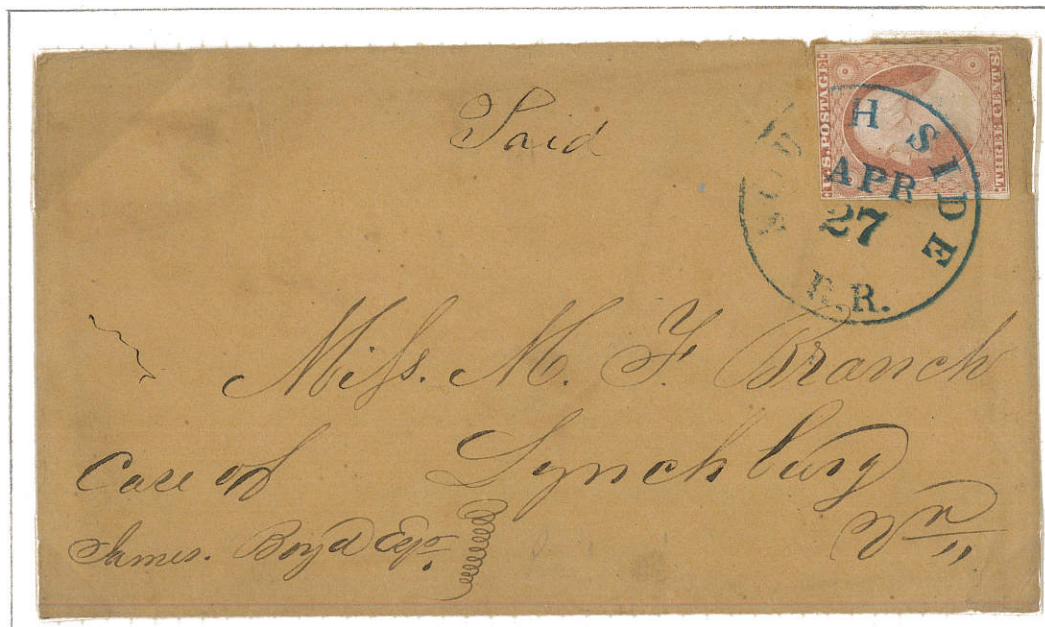 Paid
U.S. POSTAGE.
THREE CENTS.
SOUTH SIDE
APR
27
R.R.
Miſs. M. F. Branch
Care of Lynchburg
James. Boyd Esqr. Va